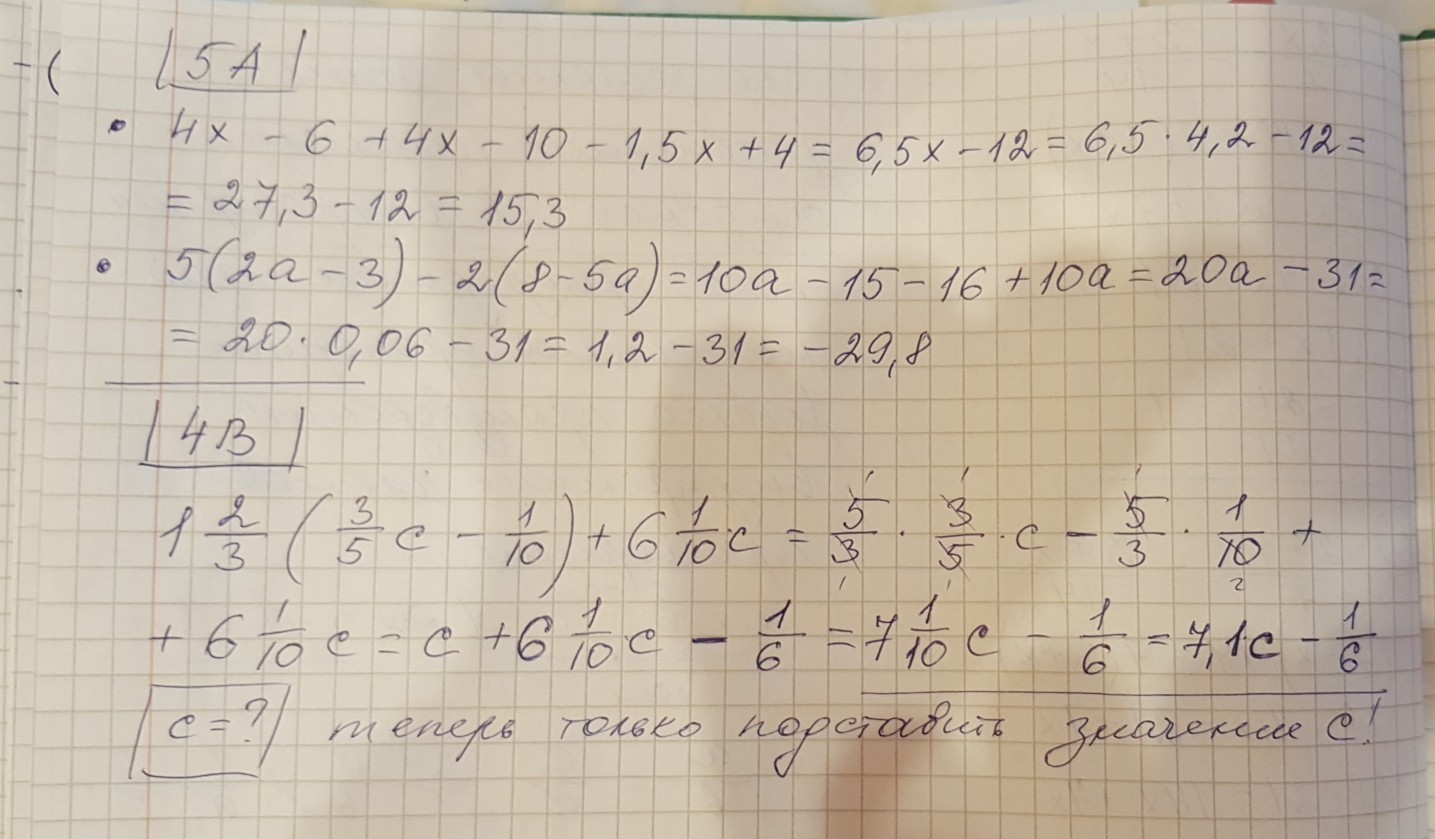 - (
|5A|
• 4x - 6 + 4x - 10 - 1,5x + 4 = 6,5x - 12 = 6,5 · 4,2 - 12 =
= 27,3 - 12 = 15,3
• 5(2a - 3) - 2(8 - 5a) = 10a - 15 - 16 + 10a = 20a - 31 =
= 20 · 0,06 - 31 = 1,2 - 31 = -29,8
|4B|
1 2/3 (3/5 c - 1/10) + 6 1/10 c = 5/3 · 3/5 · c - 5/3 · 1/10 +
+ 6 1/10 c = c + 6 1/10 c - 1/6 = 7 1/10 c - 1/6 = 7,1c - 1/6
|c=?| теперь только подставить значение c!